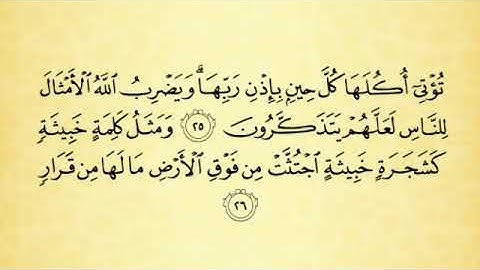 تُؤْتِيٓ أُكُلَهَا كُلَّ حِينٍۭ بِإِذْنِ رَبِّهَاۗ وَيَضْرِبُ ٱللَّهُ ٱلْأَمْثَالَ
لِلنَّاسِ لَعَلَّهُمْ يَتَذَكَّرُونَ ٢٥ وَمَثَلُ كَلِمَةٍ خَبِيثَةٖ
كَشَجَرَةٍ خَبِيثَةٍ ٱجْتُثَّتْ مِن فَوْقِ ٱلْأَرْضِ مَا لَهَا مِن قَرَارٖ
٢٦